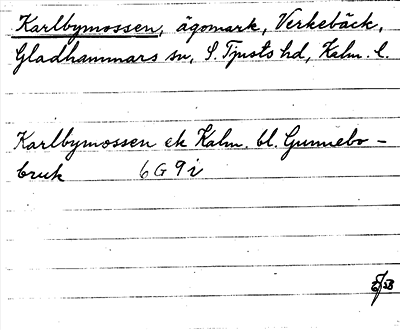 Karlbymossen, ägomark, Verkebäck,
Gladhammars sn, S. Tjusts hd, Kalm. l.
Karlbymossen ek Kalm. bl. Gunnebo-
bruk 6G 9i